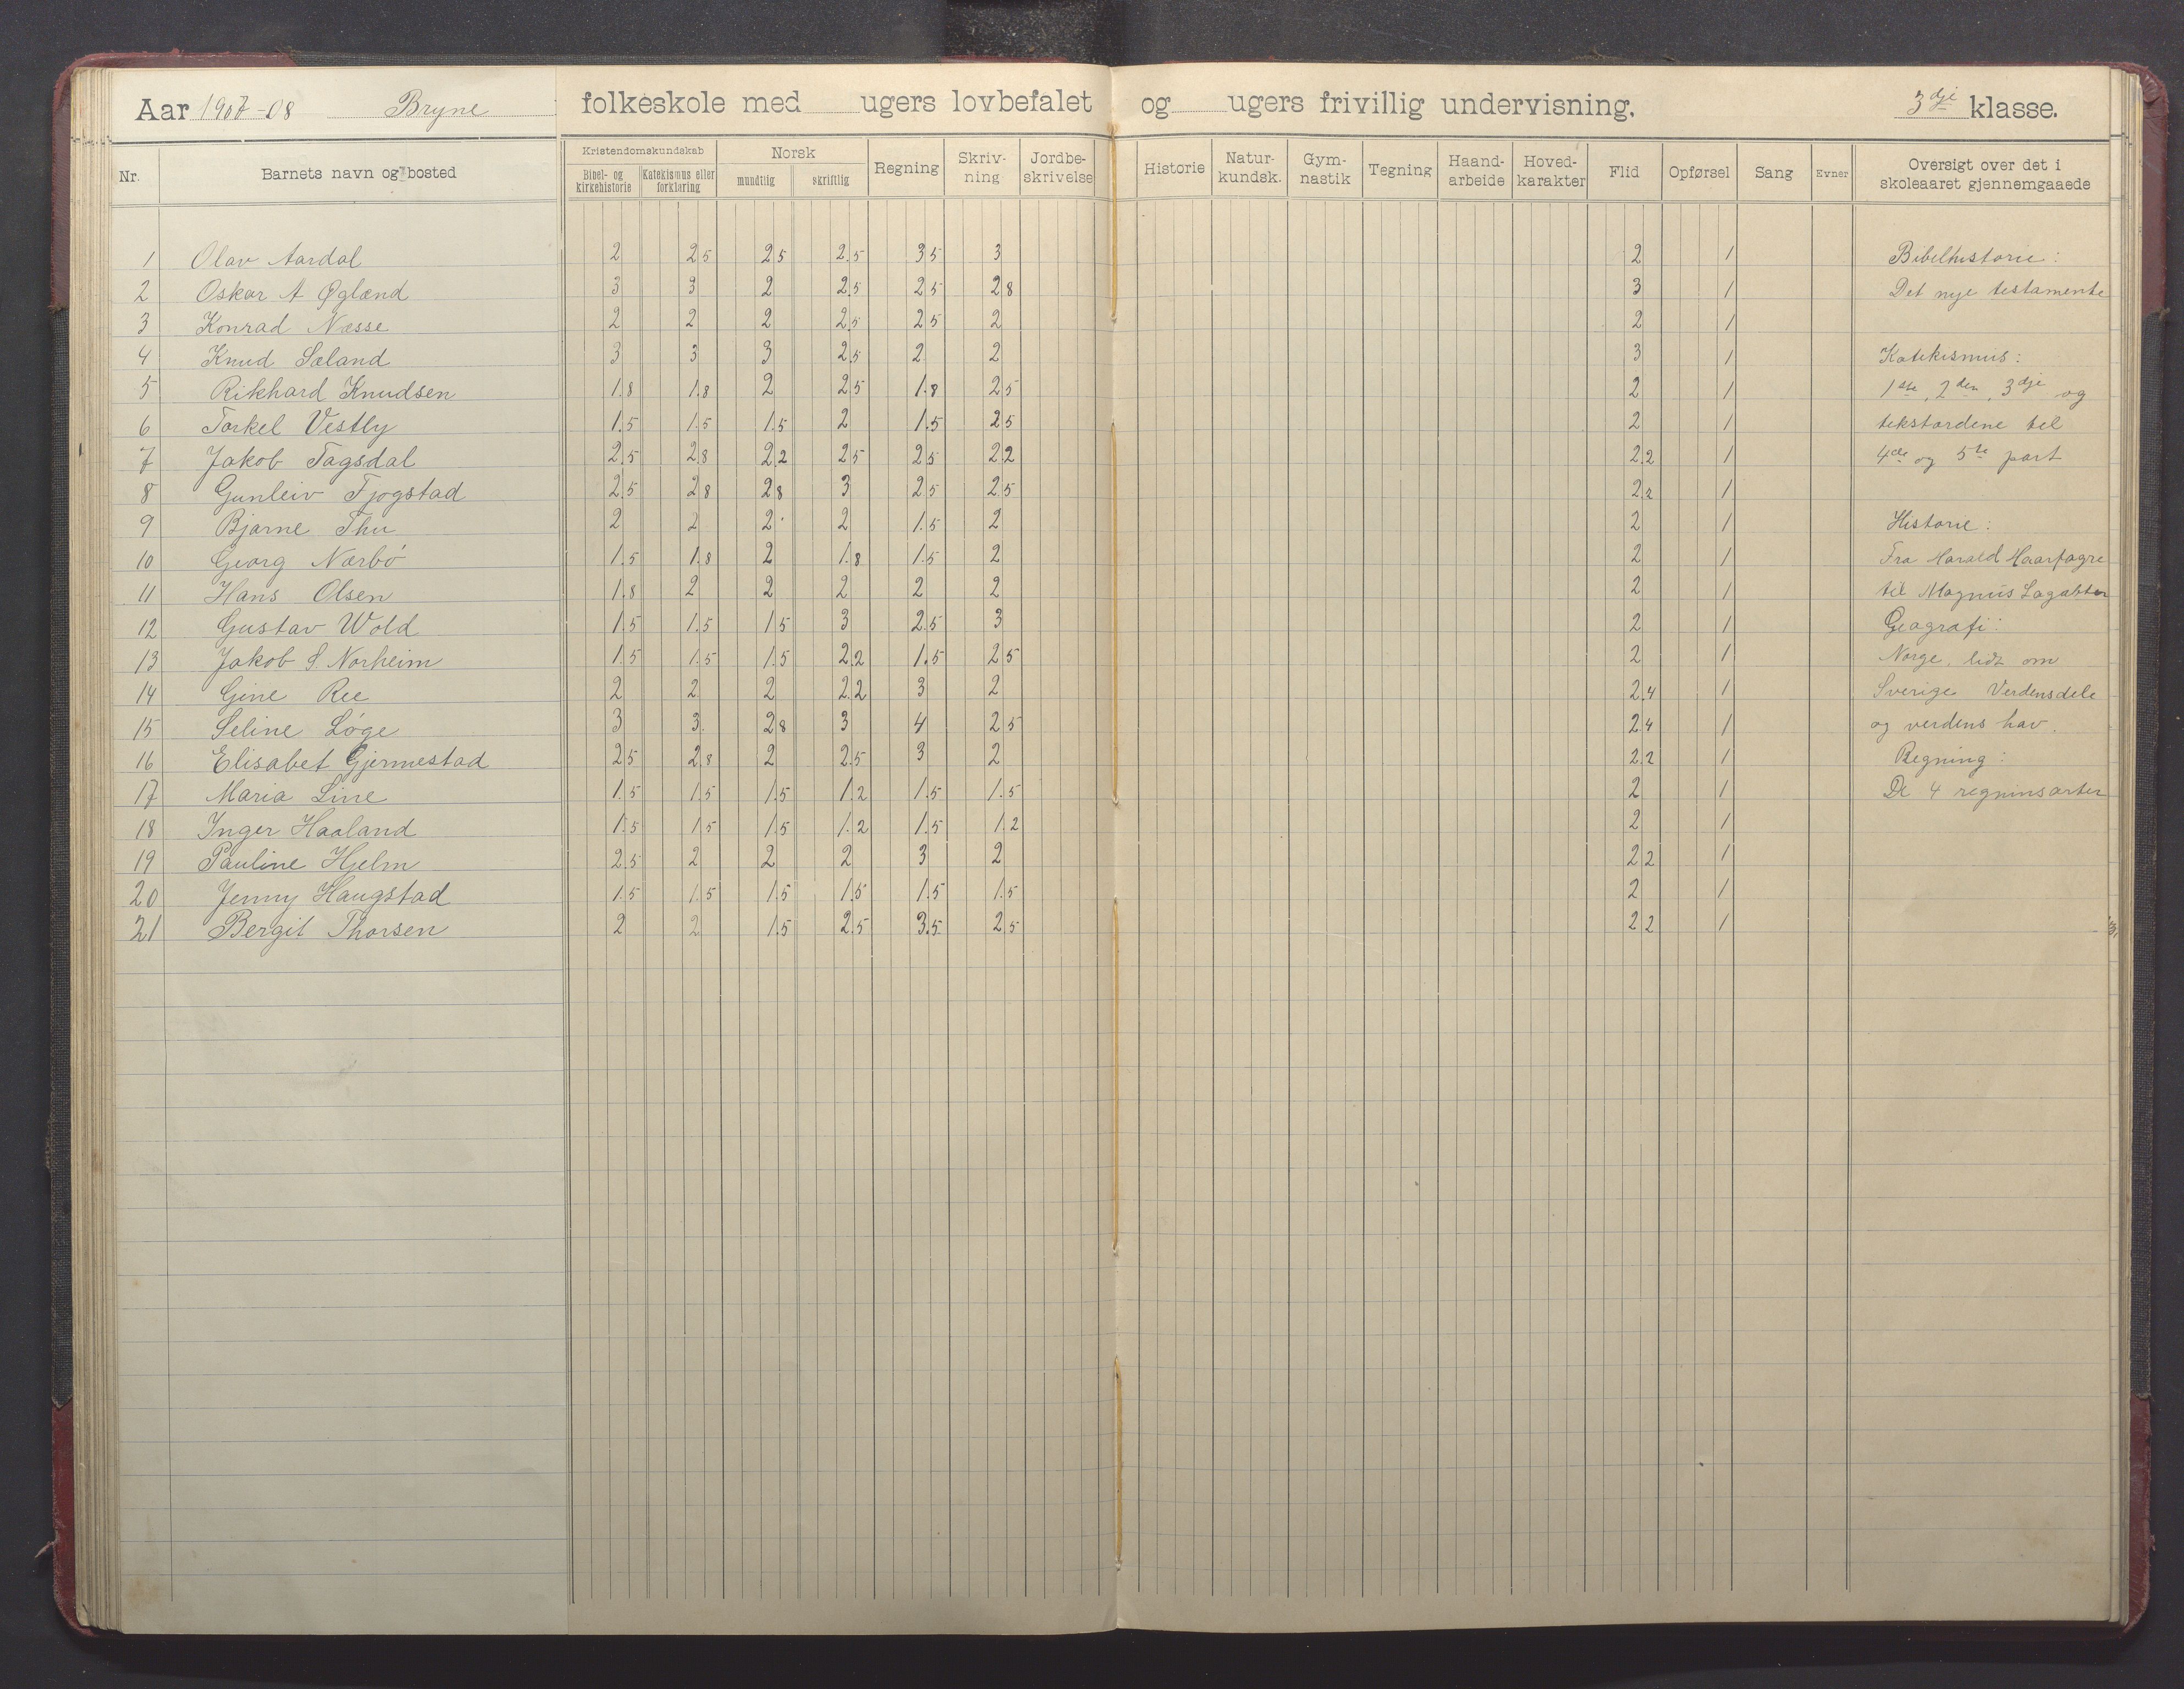 Aar 1907-08 Bryne folkeskole med ugers lovbefalet og ugers frivillig undervisning. 3dje klasse.
Nr. Barnets navn og bosted Kristendomskundskab Bibel- og kirkehistorie Katekismus eller forklaring Norsk mundtlig skriftlig Regning Skrivning Jordbeskrivelse Historie Naturkundsk. Gymnastik Tegning Haandarbeide Hovedkarakter Flid Opførsel Sang Evner Oversigt over det i skoleaaret gjennemgaaede
1 Olav Aardal 2 2.5 2.5 2.5 3.5 3 2 1 Bibelhistorie:
2 Oskar A Øglænd 3 3 2 2.5 2.5 2.8 3 1 Det nye testamente
3 Konrad Næsse 2 2 2 2.5 2.5 2 2 1
4 Knud Sæland 3 3 3 2.5 2 2 3 1 Katekismus:
5 Rikhard Knudsen 1.8 1.8 2 2.5 1.8 2.5 2 1 1ste, 2den, 3dje og
6 Torkel Vestly 1.5 1.5 1.5 2 1.5 2.5 2 1 tekstordene til
7 Jakob Tagsdal 2.5 2.8 2.2 2.5 2.5 2.2 2.2 1 4de og 5te part
8 Gunleiv Fjogstad 2.5 2.8 2.8 3 2.5 2.5 2.2 1
9 Bjarne Thu 2 2 2 2 1.5 2 2 1 Historie:
10 Georg Nærbö 1.5 1.8 2 1.8 1.5 2 2 1 Fra Harald Haarfagre
11 Hans Olsen 1.8 2 2 2 2 2 2 1 til Magnus Lagabøter
12 Gustav Wold 1.5 1.5 1.5 3 2.5 3 2 1 Geografi:
13 Jakob S. Norheim 1.5 1.5 1.5 2.2 1.5 2.5 2 1 Norge, lidt om
14 Gine Ree 2 2 2 2.2 3 2 2.4 1 Sverige Verdensdele
15 Seline Löge 3 3 2.8 3 4 2.5 2.4 1 og verdens hav.
16 Elisabet Gjermestad 2.5 2.8 2 2.5 3 2 2.2 1 Regning:
17 Maria Line 1.5 1.5 1.5 1.2 1.5 1.5 2 1 De 4 regninsarter
18 Inger Haaland 1.5 1.5 1.5 1.2 1.5 1.2 2 1
19 Pauline Hjelm 2.5 2 2 2 3 2 2.2 1
20 Jenny Haugstad 1.5 1.5 1.5 1.5 1.5 1.5 2 1
21 Bergit Thorsen 2 2 1.5 2.5 3.5 2.5 2.2 1